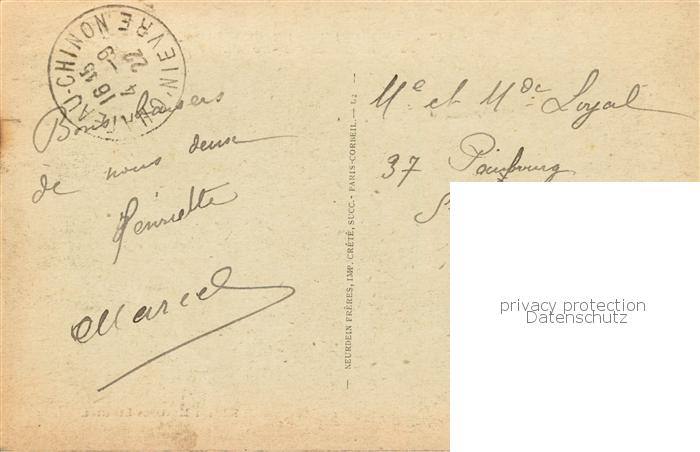 CHATEAU-CHINON NIEVRE
16 45
4 -9
22
Bons baisers
de nous deux
Henriette
Marcel
— NEURDEIN FRÈRES, IMP. CRÉTÉ, SUCC. - PARIS-CORBEIL. —
Mr et Mde Loyal
37
privacy protection
Datenschutz